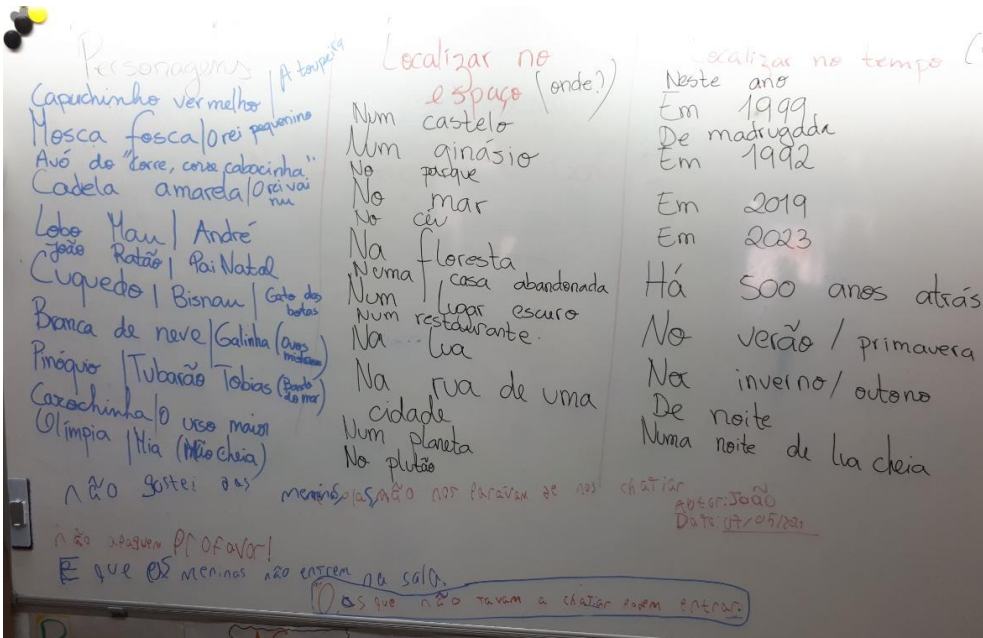 Personagens / A toupeira
Capuchinho vermelho
Mosca fosca / O rei pequenino
Avó do "Corre, corre cabacinha"
Cadela amarela / O rei vai nu
Lobo Mau | André
João Ratão | Pai Natal
Cuquedo | Bisnau | Gato das botas
Branca de neve | Galinha (Ovos
Pinóquio | Tubarão Tobias (Bando do mar)
Carochinha / O urso maior
Olímpia | Mia (Mão cheia)
Localizar no
espaço (onde?)
Num castelo
Num ginásio
No parque
No mar
No céu
Na floresta
Numa casa abandonada
Num lugar escuro
Num restaurante.
Na lua
Na rua de uma
cidade
Num planeta
No plutão
Localizar no tempo (
Neste ano
Em 1999
De madrugada
Em 1992
Em 2019
Em 2023
Há 500 anos atrás
No verão / primavera
No inverno / outono
De noite
Numa noite de lua cheia
não gostei das meninas não nos paravam de nos chatiar
Autor: João
Data: 07/05/
não apaguem Profavor!
E que as meninas não entrem na sala.
os que não tavam a chatiar podem entrar.